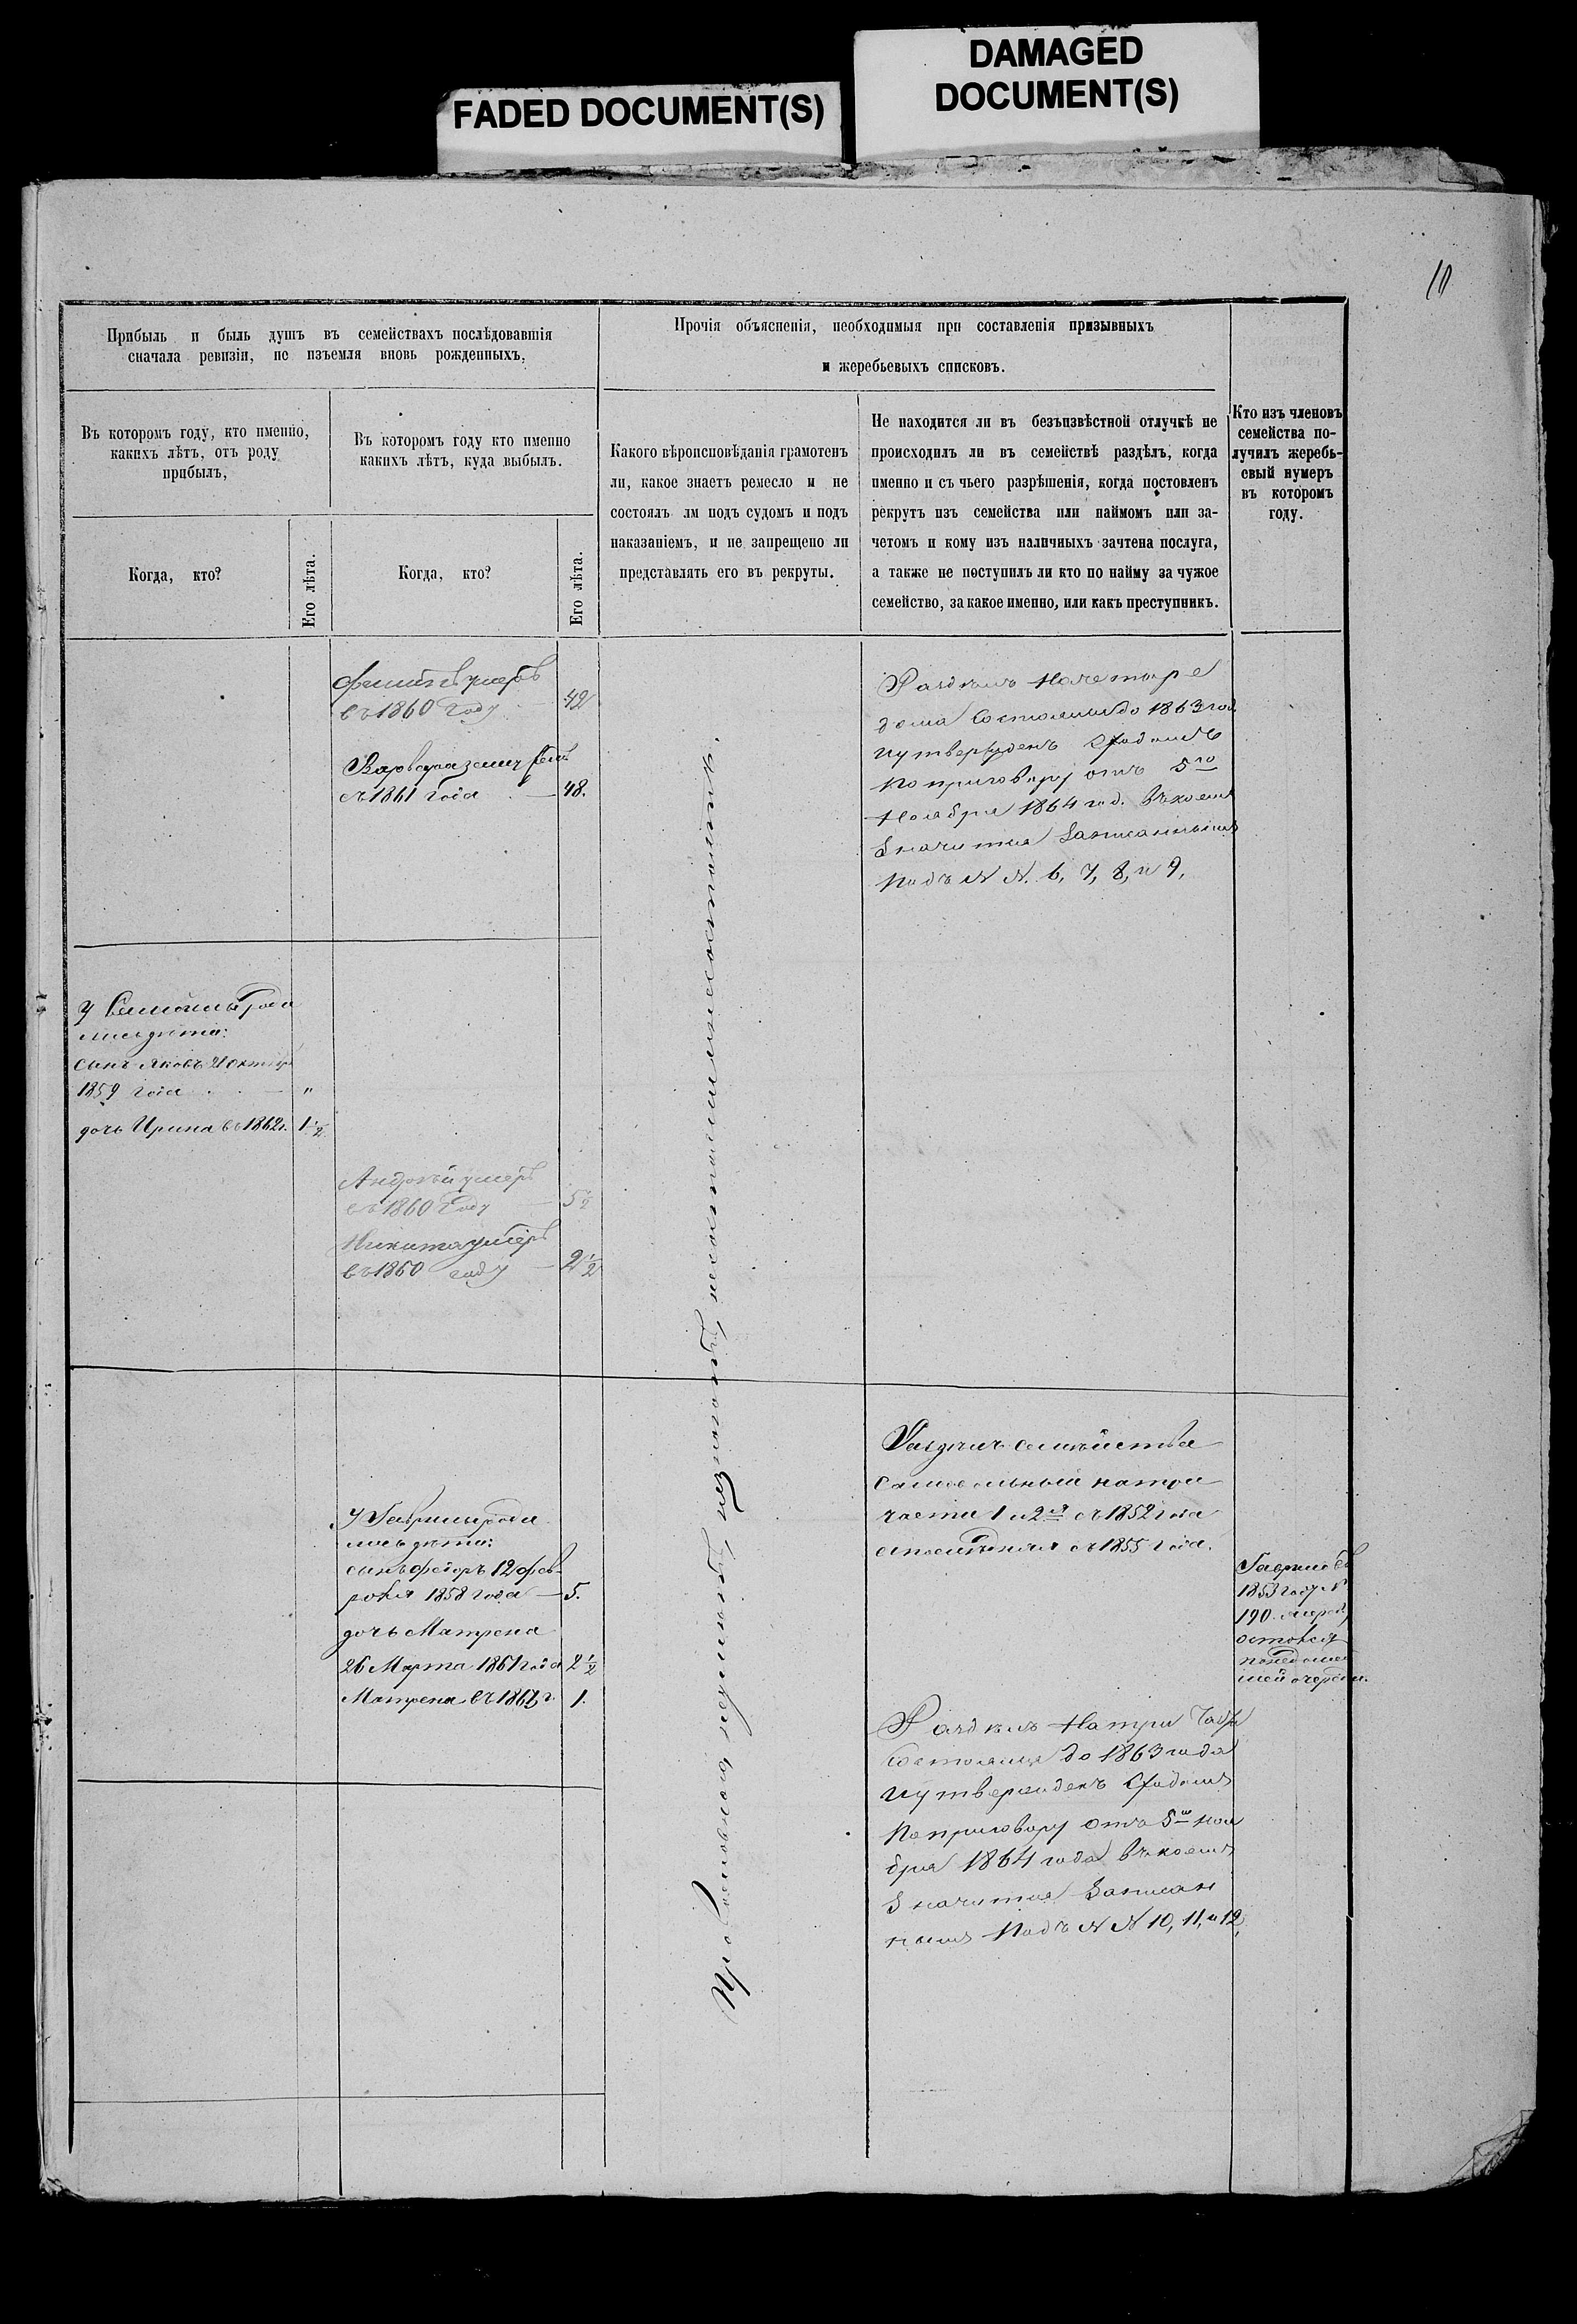 FADED DOCUMENT(S)
DAMAGED
DOCUMENT(S)
Прибыль и быль душъ въ семействахъ послѣдовавшія
сначала ревизіи, не изъемля вновь рожденныхъ.
Прочія объясненія, необходимыя при составленія призывныхъ
и жеребьевыхъ списковъ.
Въ которомъ году, кто именно,
какихъ лѣтъ, отъ роду
прибылъ,
Въ которомъ году кто именно
какихъ лѣтъ, куда выбылъ.
Какого вѣроисповѣданія грамотенъ
ли, какое знаетъ ремесло и не
состоялъ лм подъ судомъ и подъ
наказаніемъ, и не запрещено ли
представлять его въ рекруты.
Не находится ли въ безъизвѣстной отлучкѣ не
происходилъ ли въ семействѣ раздѣлъ, когда
именно и съ чьего разрѣшенія, когда постовленъ
рекрутъ изъ семейства или наймомъ или за-
четомъ и кому изъ наличныхъ зачтена послуга,
а также не поступилъ ли кто по найму за чужое
семейство, за какое именно, или какъ преступникъ.
Кто изъ членовъ
семейства по-
лучилъ жеребь-
евый нумеръ
въ которомъ
году.
Когда, кто?
Его лѣта.
Когда, кто?
Его лѣта.
умеръ
въ 1860 году 42
съ 1861 года 48.
Раздѣлъ на четыре
дома состоялся до 1863 год
и утвержденъ сходомъ
по приговору отъ 5го
Ноября 1864 год. въ коемъ
значится записаннымъ
подъ N N. 6, 7, 8, и 9,
У роди
лись дѣти:
сынъ Яковъ 21 октяб
1859 года "
дочь Ирина въ 1862 г. 1 1/2
Андрей умеръ
въ 1860 году 5 1/2
Никита умеръ
въ 1860 году 2 1/2
Раздѣлъ семейства
самовольный на три
части 1 и 2я съ 1852 года
а последняя съ 1855 года.
У Гаврилы роди
лись дѣти:
сынъ Федоръ 12 фев
раля 1858 года 5.
дочь Матрена
26 Марта 1861 года 2 1/2
Матрена въ 1862 г. 1.
Гаврило въ
1853 году N
190.
остался
шей очереди.
Раздѣлъ на три
состоялся до 1863 года
и утвержденъ сходомъ
по приговору отъ 5го ноя
бря 1864 года въ коемъ
значится записан
нымъ подъ N N 10, 11, и 12,
Православного